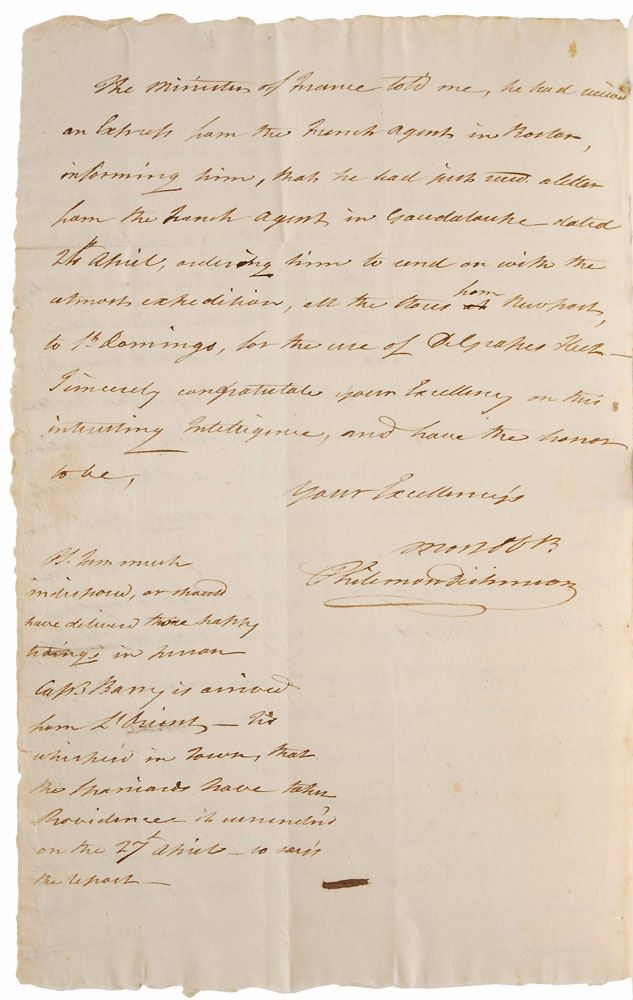 The Minister of France told me, he had recieved
an Express from the French Agent in Boston,
informing him, that he had just recd. a letter
from the French Agent in Gaudalouke dated
24th April, ordering him to send on with the
utmost expedition, all the Stores from Newport,
to St. Domingo, for the use of DeGrasses Fleet—
I sincerely congratulate your Excellency on this
interesting Intelligence, and have the honor
to be,
Your Excellency's
most Ob.
Philemon Dickinson
Ps. I am much
indisposed, or should
have delivered these happy
tidings in person
Capt. Barry is arrived
from L'Orient,— Tis
whisper'd in Town, that
the Spaniards have taken
Providence it surrender'd
on the 27th April— so says
the report—